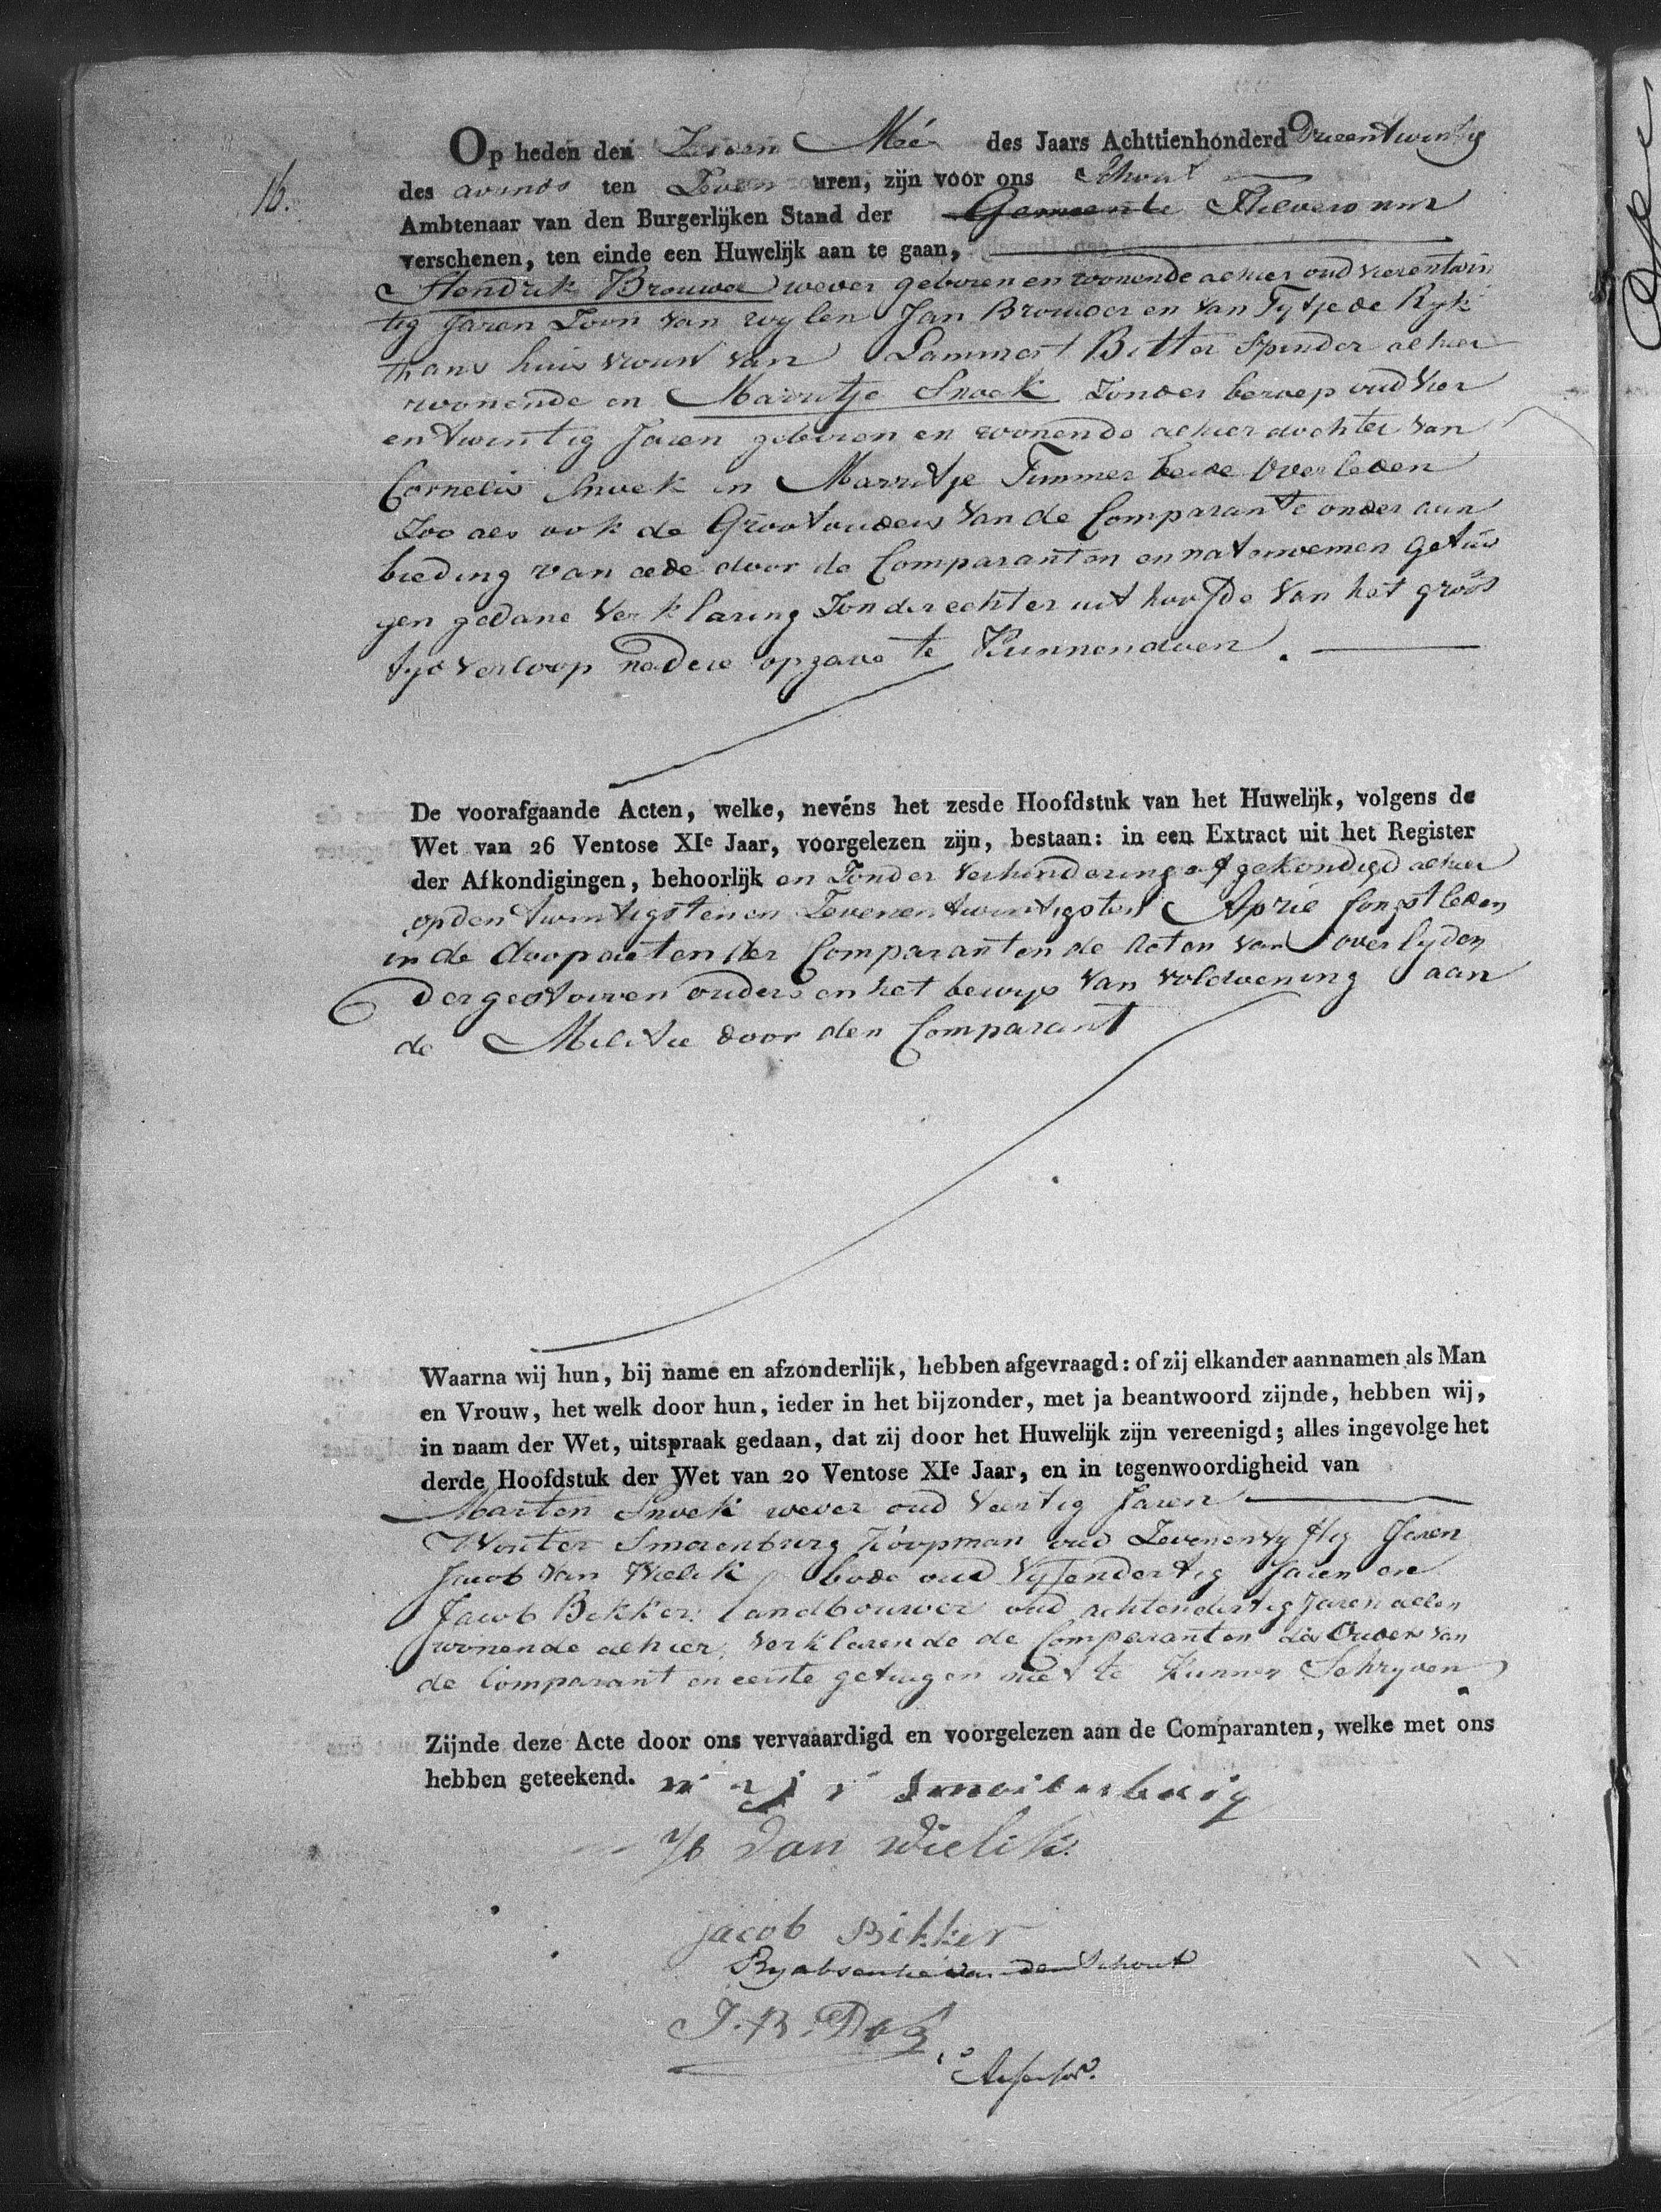 16.
Op heden den Zeven Mei des Jaars Achttienhonderd Drieentwintig
des avonds ten Zeven uren, zijn voor ons Schout
Ambtenaar van den Burgerlijken Stand der Gemeente Hilversum
verschenen, ten einde een Huwelijk aan te gaan,
Hendrik Brouwer wever geboren en wonende alhier oud vierentwin
tig Jaren Zoon van wylen Jan Brouwer en van Tytje de Ryk
thans huisvrouw van Lammert Bitter Spinder alhier
wonende en Marritje Snoek Zonder beroep oud vier
entwintig Jaren geboren en wonende alhier dochter van
Cornelis Snoek en Marritje Timmer beide overleden
Zoo als ook de Grootouders van de Comparante onder aan
bieding van eede door de Comparanten en natenoemen getui
gen gedane verklaring Zonder echter uit hoofde van het groot
tyd verloop nadere opgave te Kunnen doen.
De voorafgaande Acten, welke, nevéns het zesde Hoofdstuk van het Huwelijk, volgens de
Wet van 26 Ventose XIe Jaar, voorgelezen zijn, bestaan: in een Extract uit het Register
der Afkondigingen, behoorlijk en Zonder verhindering afgekondigd alhier
op den twintigsten en Zevenentwintigsten April jongstleden
in de doopacten der Comparanten de Acten van overlyden
der gestorven ouders en het bewys van voldoening aan
de Militie door den Comparant
Waarna wij hun, bij name en afzonderlijk, hebben afgevraagd: of zij elkander aannamen als Man
en Vrouw, het welk door hun, ieder in het bijzonder, met ja beantwoord zijnde, hebben wij,
in naam der Wet, uitspraak gedaan, dat zij door het Huwelijk zijn vereenigd; alles ingevolge het
derde Hoofdstuk der Wet van 20 Ventose XIe Jaar, en in tegenwoordigheid van
Marten Snoek wever oud veertig Jaren
Wouter Smorenburg Koopman oud Zevenenvyftig Jaren
Jacob van Wielik bode oud vyfendertig Jaren en
Jacob Bikker landbouwer oud achtendertig Jaren allen
wonende alhier, verklarende de Comparanten de Ouders van
de Comparant en eerste getuigen niet te Kunnen Schryven
Zijnde deze Acte door ons vervaaardigd en voorgelezen aan de Comparanten, welke met ons
hebben geteekend.
Smorenburg
Jb van Wielik
Jacob Bikker
By absentie van den Schout
J. B. Dob
Assessor.